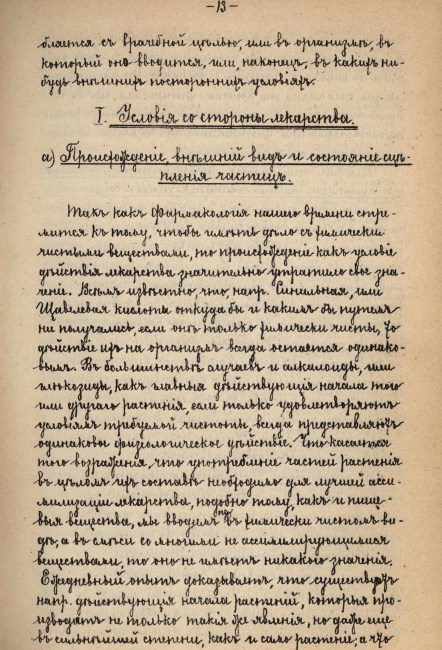 —13—
бляется съ врачебной цѣлью, или въ организмѣ, въ
который оно вводится, или, наконецъ, въ какихъ ни-
будь внѣшнихъ постороннихъ условіяхъ.
I. Условія со стороны лекарства.
а) Происхожденіе, внѣшній видъ и состояніе сцѣ-
пленія частицъ.
Такъ какъ Фармакологія нашего времени стре-
мится къ тому, чтобы имѣть дѣло съ химически
чистыми веществами, то происхожденіе какъ условіе
дѣйствія лекарства значительно утратило свое зна-
ченіе. Всѣмъ извѣстно, что, напр. Синильная, или
Щавелевая кислоты откуда бы и какимъ бы путемъ
ни получались, если онѣ только химически чисты, то
дѣйствіе ихъ на организмъ всегда остается одинако-
вымъ. Въ большинствѣ случаевъ и алкалоиды, или
глюкозиды, какъ главныя дѣйствующія начала того
или другаго растенія, если только удовлетворяютъ
условіямъ требуемой чистоты, всегда представляютъ
одинаковое физіологическое дѣйствіе. Что касается
того возраженія, что употребленіе частей растенія
въ цѣломъ ихъ составѣ необходимо для лучшей асси-
милизаціи лекарства, подобно тому, какъ и пище-
выя вещества, мы вводимъ не въ химически чистомъ ви-
дѣ, а въ смѣси со многими не ассимилирующимися
веществами, то оно не имѣетъ никакого значенія.
Ежедневный опытъ доказываетъ, что существуютъ
напр. дѣйствующія начала растеній, которыя про-
изводятъ не только такія же явленія, но даже еще
въ сильнѣйшей степени, какъ и само растеніе; а что